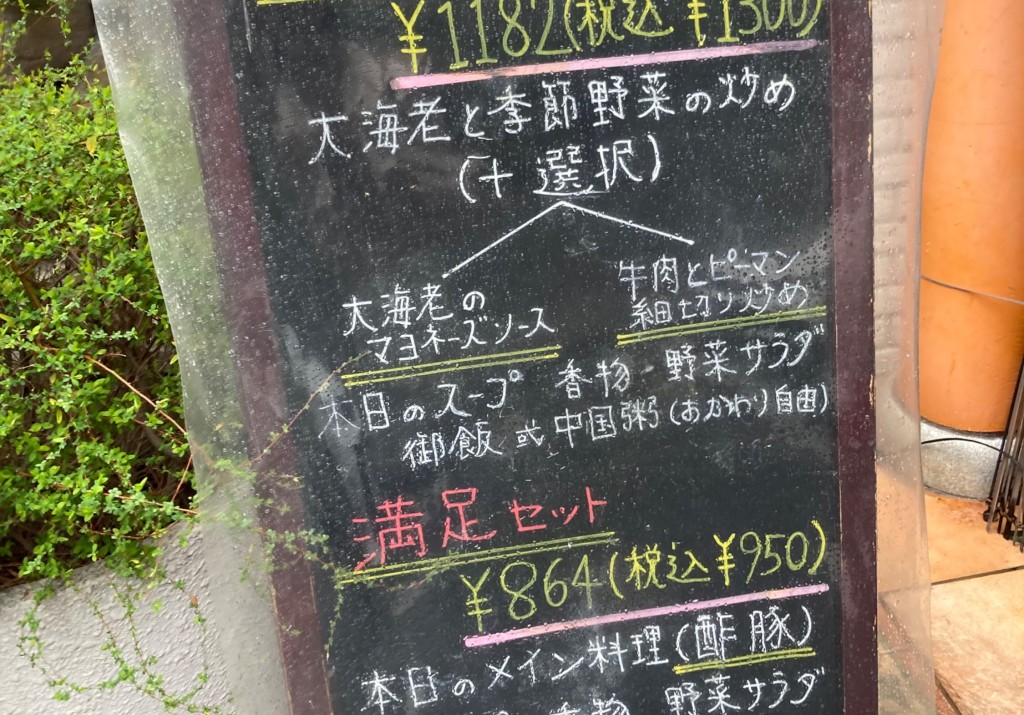 ¥1182(税込¥1300)
大海老と季節野菜の炒め
(+選択)
大海老の
マヨネーズソース
牛肉とピーマン
細切り炒め
本日のスープ 香物・野菜サラダ
御飯 或 中国粥(おかわり自由)
満足セット
¥864(税込¥950)
本日のメイン料理(酢豚)
香物・野菜サラダ